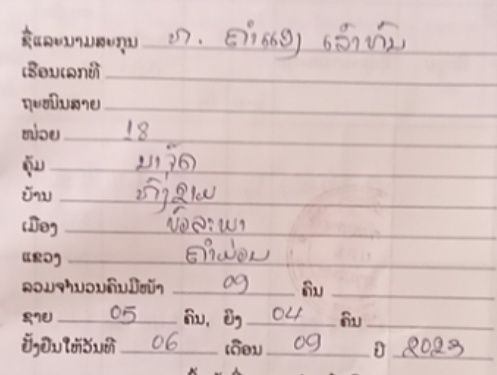 ຊື່ແລະນາມສະກຸນ ທ. ຄຳແສງ
ເຮືອນເລກທີ
ຖະໜົນສາຍ
ໜ່ວຍ 18
ຄຸ້ມ
ບ້ານ
ເມືອງ ບົວລະພາ
ແຂວງ ຄຳມ່ວນ
ລວມຈຳນວນຄົນມີໜ້າ 09 ຄົນ
ຊາຍ 05 ຄົນ, ຍິງ 04 ຄົນ
ຢັ້ງຢືນໃຫ້ວັນທີ 06 ເດືອນ 09 ປີ 2023